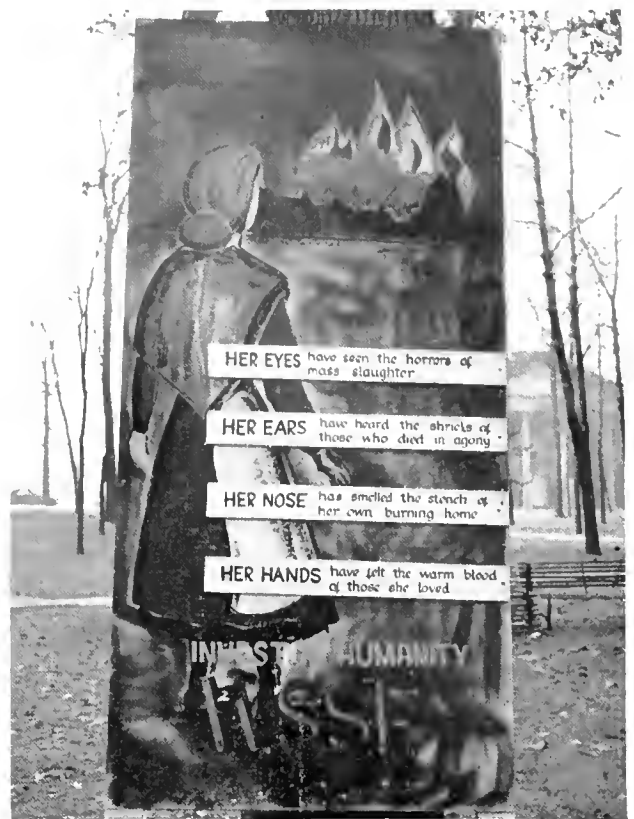 HER EYES have seen the horrors of
mass slaughter
HER EARS have heard the shrieks of
those who died in agony
HER NOSE has smelled the stench of
her own burning home
HER HANDS have felt the warm blood
of those she loved
INVEST HUMANITY